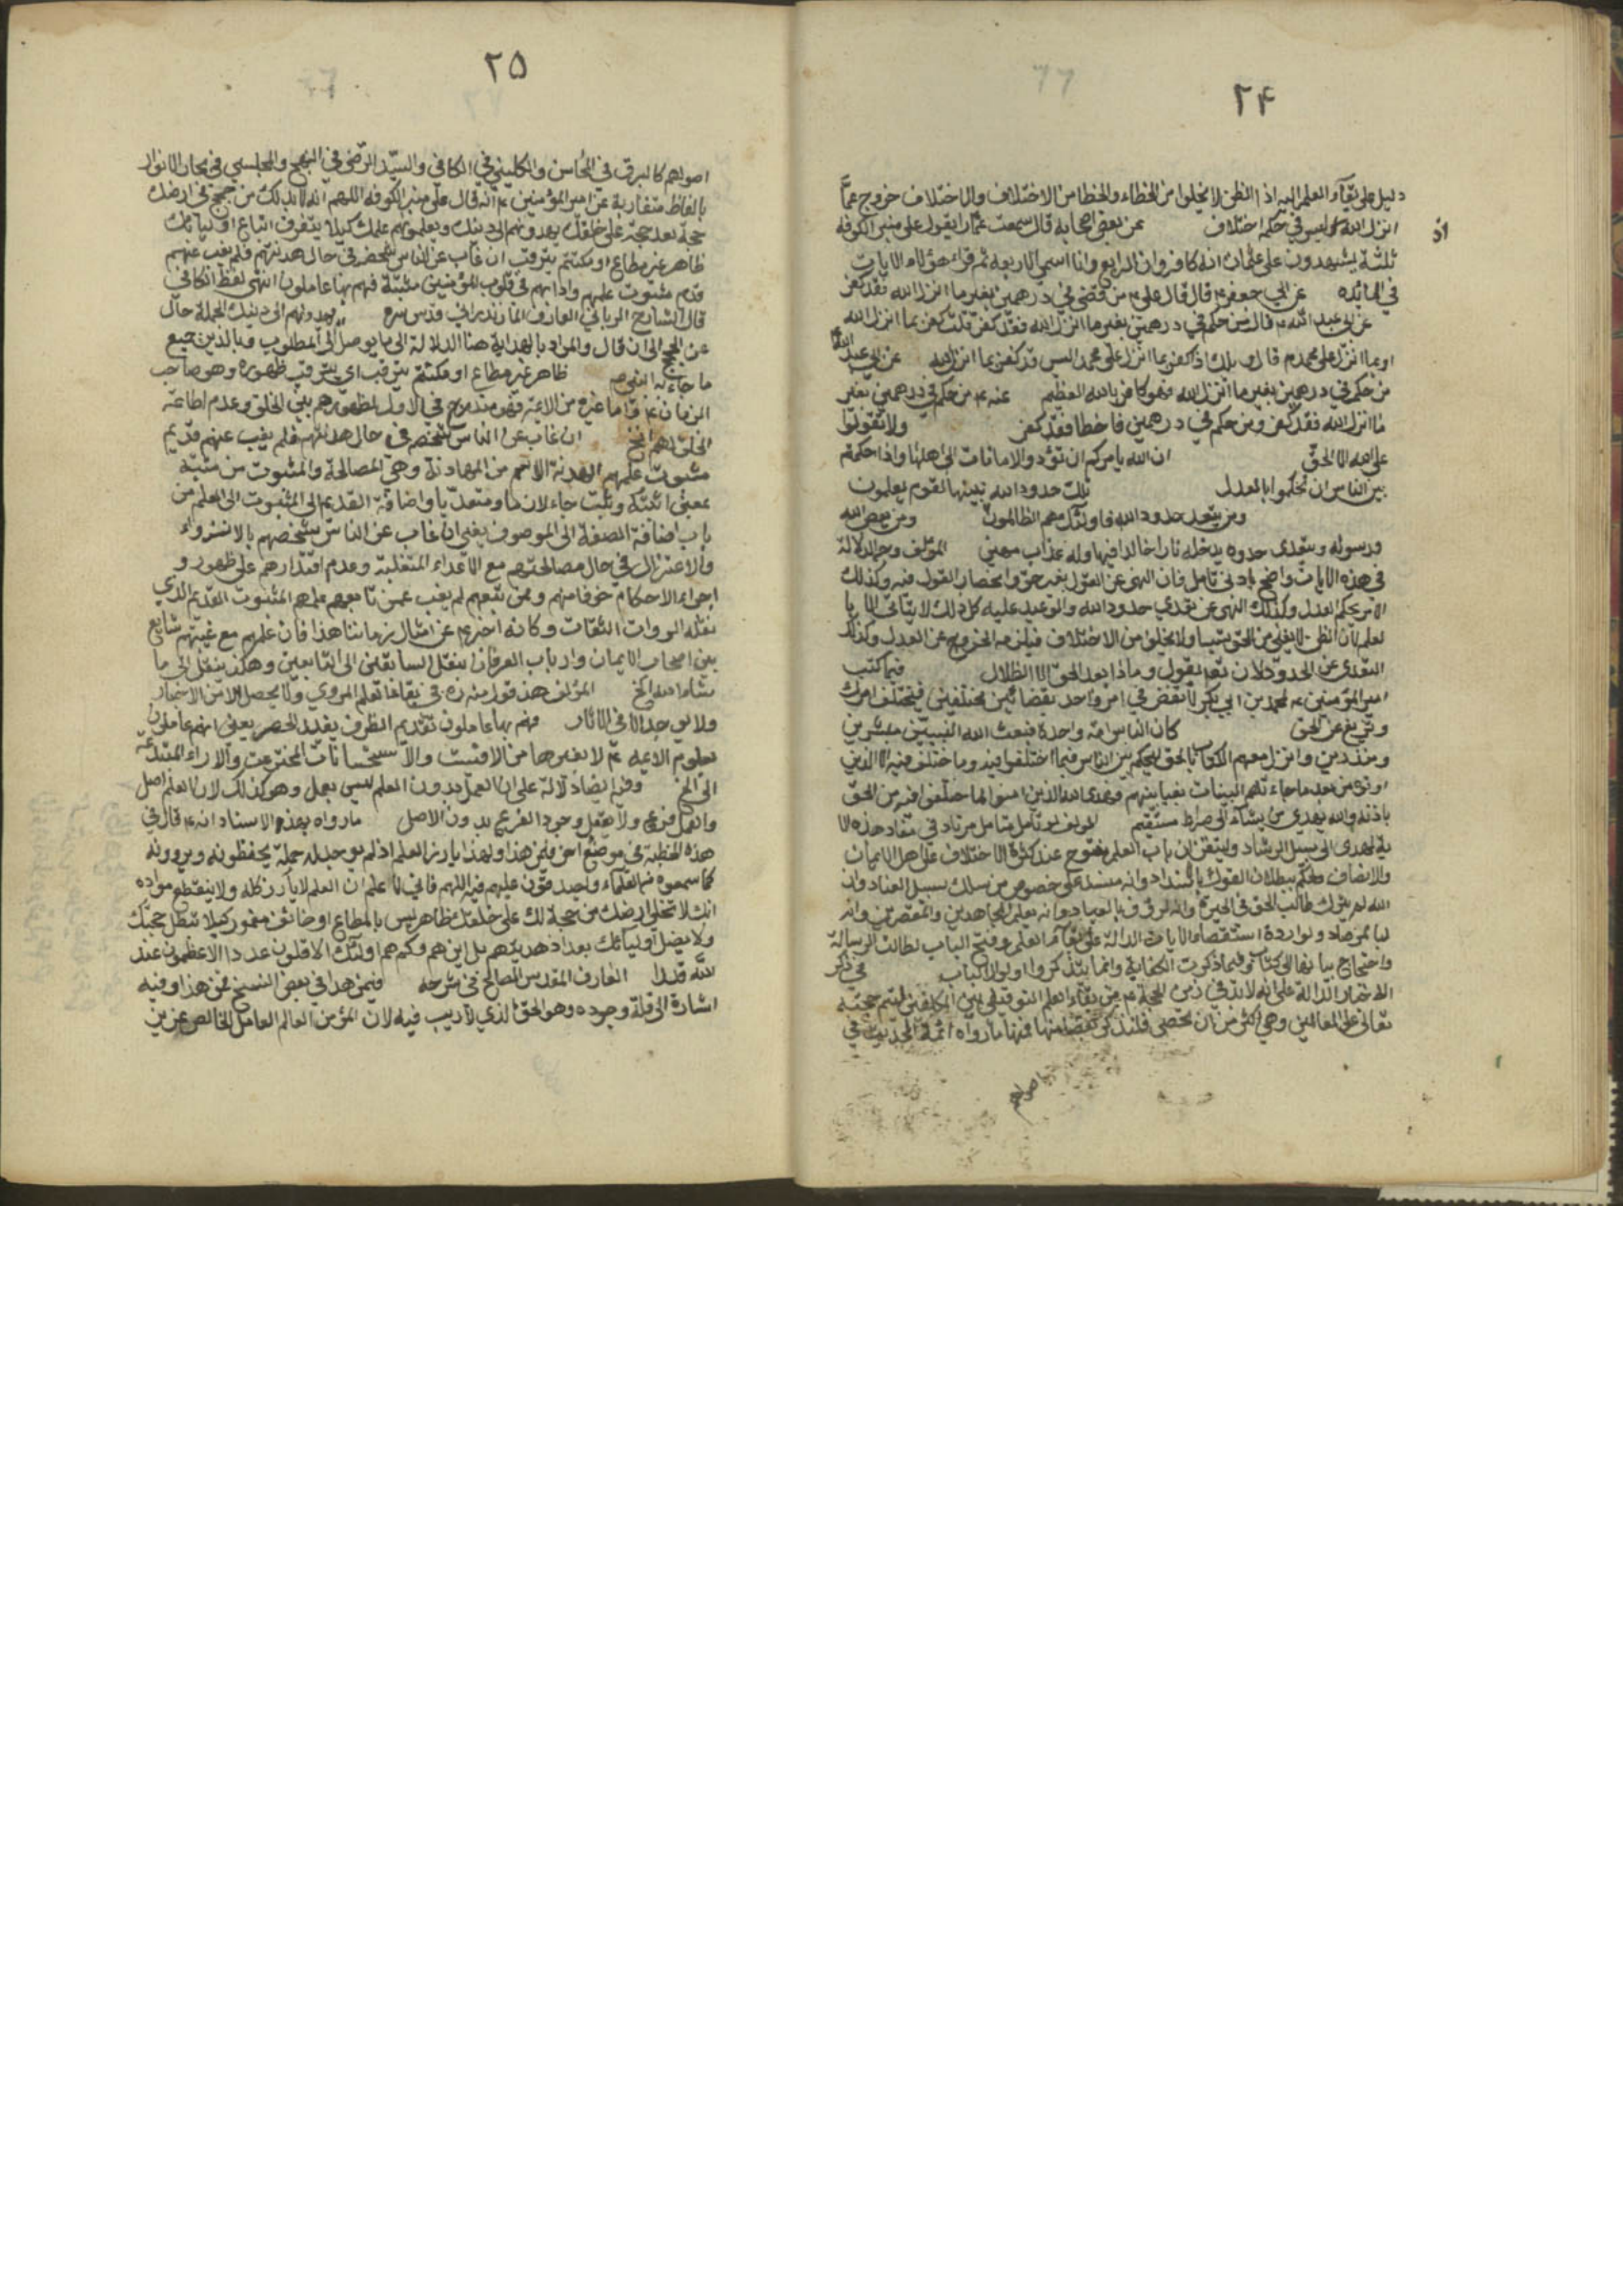 ۲۴
دليل على بقآء العلم اليه اذ الظن لا يخلوا من الخطاء والخطا من الاختلاف والاختلاف خروج عمّا
اذ
انزل الله وليس في حكمه اختلاف عن بعض اصحابه قال سمعت عمّارا يقول على منبر الكوفه
ثلثة يشهدون على عثمان انه كافر وانا الرابع وانا اسمي الاربعه ثم قراء هؤلاء الايات
في المائده عن ابي جعفر ع قال قال علي ع من قضى في درهمين بغير ما انزل الله فقد كفر
عن ابي عبد الله ع قال من حكم في درهمين بغير ما انزل الله فقد كفر قلت كفر بما انزل الله
او بما انزل على محمد ص قال ويلك اذا كفر بما انزل على محمد اليس قد كفر بما انزل الله عن ابي عبد الله ع
من حكم في درهمين بغير ما انزل الله فهو كافر بالله العظيم عنه ع من حكم في درهمين بغير
ما انزل الله فقد كفر ومن حكم في درهمين فاخطا فقد كفر ولا تقولوا
على الله الا الحقّ ان الله يامركم ان تؤدوا الامانات الى اهلها واذا حكمتم
بين الناس ان تحكموا بالعدل تلك حدود الله يبينها لقوم يعلمون
ومن يتعد حدود الله فاولئك هم الظالمون ومن يعص الله
ورسوله ويتعدى حدوده يدخله نارا خالدا فيها وله عذاب مهين المؤلف وجه الدلالة
في هذه الايات واضح بادنى تامل فان النهي عن القول بغير حق وانحصار القول فيه وكذلك
الامر بحكم العدل وكذلك النهي عن تعدي حدود الله والتوعيد عليه كل ذلك لا يتاتى الا با
لعلم لان الظن لا يغني من الحق شيئا ولا يخلوا من الاختلاف فيلزمه الخروج عن العدل وكذلك
التعدى عن الحدود لان تعالى يقول وماذا بعد الحق الا الظلال فيما كتب
امير المؤمنين ع لمحمد بن ابي بكر لا تقض في امر واحد بقضائين مختلفين فيختلف امرك
وتزيغ عن الحق كان الناس امة واحدة فبعث الله النبيين مبشرين
ومنذرين وانزل معهم الكتاب بالحق ليحكم بين الناس فيما اختلفوا فيه وما اختلف فيه الا الذين
اوتوه من بعد ما جاءتهم البينات بغيا بينهم فهدى الله الذين امنوا لما اختلفوا فيه من الحق
باذنه والله يهدي من يشآء الى صراط مستقيم المؤلف لو تامل متامل مرتاد في مفاد هذه الا
ية لهدى الى سبيل الرشاد وليتقن ان باب العلم مفتوح عند كثرة الاختلاف على اهل الايمان
والانصاف وحكم ببطلان القول بالانسداد وانه منسد على خصوص من سلك سبيل العناد وان
الله لم يترك طالب الحق في الحيرة وانه لرؤف بالعباد وانه يعلم المجاهدين والمقصرين وانه
لبالمرصاد ولو اردنا استقصاء الايات الدالة على بقآء العلم وفتح الباب لطالت الرسالة
واحتاج بيانها الى كتاب وفيما ذكرت الكفاية وانما يتذكر اولوا الالباب في ذكر
الاخبار الدالة على انه لا بد في زمن الحجة ع من بقاء العلم التوقيفي بين المكلفين لتتم حجته
تعالى على العالمين وهي اكثر من ان تحصى فلنذكر بعضا منها فمنها ما رواه ائمة الحديث في
اصولهم
۲۵
اصولهم كالبرقي في المحاسن والكليني في الكافي والسيّد الرّضى في النهج والمجلسي في بحار الانوار
بالفاظ متقاربة عن امير المؤمنين ع انه قال على منبر الكوفه اللهم انه لا بد لك من حجج في ارضك
حجة بعد حجة على خلقك يهدونهم الى دينك ويعلمونهم علمك كيلا يتفرق اتباع اوليائك
ظاهر غير مطاع او مكتتم يترقب ان غاب عن الناس شخصهم في حال هدنتهم فلم يغب عنهم
قديم مثبوت علمهم وادابهم في قلوب المؤمنين مثبتة فهم بها عاملون انتهى لفظ الكافي
قال الشارح الرباني العارف المازندراني قدس سره يهدونهم الى دينك الجملة حال
عن الحجج الى ان قال والمراد بالهداية هنا الدلالة الى ما يوصل الى المطلوب وبالدين جميع
ما جاء به النبي ص ظاهر غير مطاع او مكتتم يترقب اي يترقب ظهوره وهو صاحب
الزمان ع واما غيره من الائمة فهو مندرج في الاول لظهورهم بين الخلق وعدم اطاعة
الخلق لهم الخ ان غاب عن الناس شخصهم في حال هدنتهم فلم يغب عنهم قديم
مثبوت علمهم الهدنة الاسم من المهادنة وهي المصالحة والمثبوت من مثبتة
بمعنى اثبته وثبت جاء لازما ومتعديا واضافة القديم الى المثبوت الى العلم من
باب اضافة الصفة الى الموصوف يعني ان غاب عن الناس شخصهم بالانزواء
والاعتزال في حال مصالحتهم مع الاعداء المتغلبة وعدم اقتدارهم على ظهور و
اجراء الاحكام خوفا منهم وممن تبعهم لم يغب عمن تابعهم علمهم المثبوت القديم الذي
نقله الروات الثقات وكانه اخبرهم عن امثال زماننا هذا فان علمهم مع غيبتهم شايع
بين اصحاب الايمان وارباب العرفان ينقل السابقين الى التابعين وهكذا ينقل الى ما
شاء الله الخ المؤلف هذا قول منه ره في بقاء تعلم المروي ولا يحصل الا من الاخبار
ولا يوجد الا في الاثار فهم بها عاملون تقديم الظرف يفيد الحصر يعني انهم عاملون
بعلوم الائمه ع لا بغيرها من الاقيسة والاستحسانات المخترعة والاراء المبتدعة
الى الخ وفيه ايضا دلالة على ان العمل بدون العلم ليس بعمل وهو كذلك لان العلم اصل
والعمل فرع ولا يعقل وجود الفرع بدون الاصل ما رواه بهذه الاسناد انه ع قال في
هذه الخطبة في موضع اخر فيمن هذا ولهذا يارز العلم اذ لم يوجد له حملة يحفظونه ويروونه
كما سمعوه من العلماء ويصدقون عليهم فيه اللهم فاني لاعلم ان العلم لا يارز كله ولا ينقطع مواده
انك لا تخلي ارضك من حجة لك على خلقك ظاهر ليس بالمطاع او خائف مغمور كيلا تبطل حججك
ولا يضل اوليائك بعد اذ هديتهم بل اين هم وكم هم اولئك الاقلون عددا الاعظمون عند
الله قدرا العارف المقدس الصالح في شرحه فيمن هذا في بعض النسخ فمن هذا وفيه
اشارة الى قلة وجوده وهو الحق الذي لا ريب فيه لان المؤمن العالم العامل الخالص عزيز